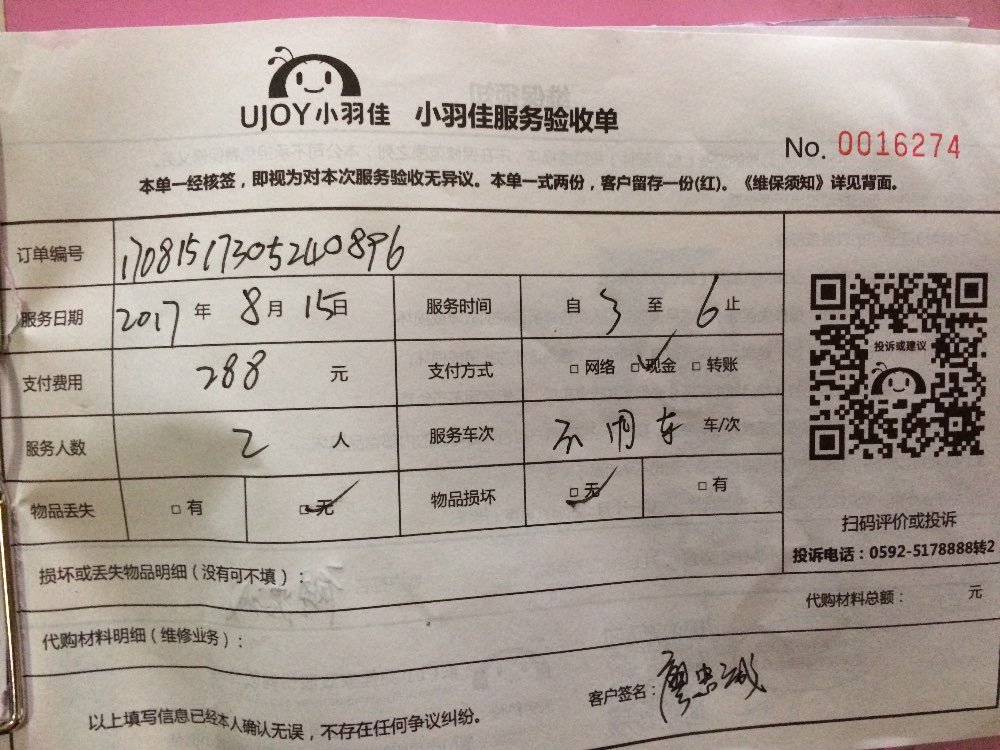 UJOY小羽佳 小羽佳服务验收单
No. 0016274
本单一经核签，即视为对本次服务验收无异议。本单一式两份，客户留存一份(红)。《维保须知》详见背面。
订单编号 170815173052240896
服务日期 2017 年 8 月 15 日 服务时间 自 3 至 6 止
支付费用 288 元 支付方式 □ 网络 □ 现金 □ 转账
服务人数 2 人 服务车次 不用车 车/次
物品丢失 □ 有 □ 无 物品损坏 □ 无 □ 有
投诉或建议
扫码评价或投诉
投诉电话：0592-5178888转2
损坏或丢失物品明细（没有可不填）：
代购材料总额： 元
代购材料明细（维修业务）：
客户签名：廖忠诚
以上填写信息已经本人确认无误，不存在任何争议纠纷。